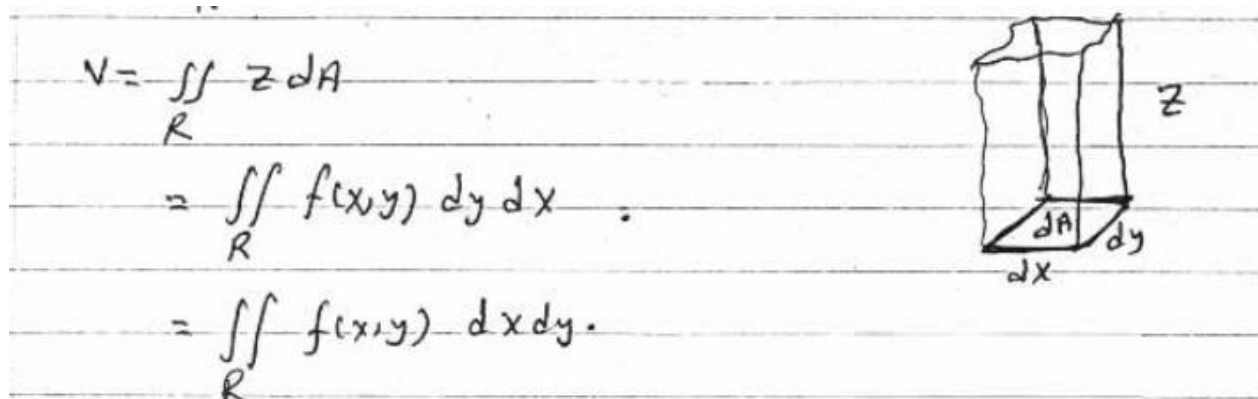 V = ∬ z dA
R
= ∬ f(x,y) dy dx .
R
= ∬ f(x,y) dx dy.
R
z
dA
dy
dx